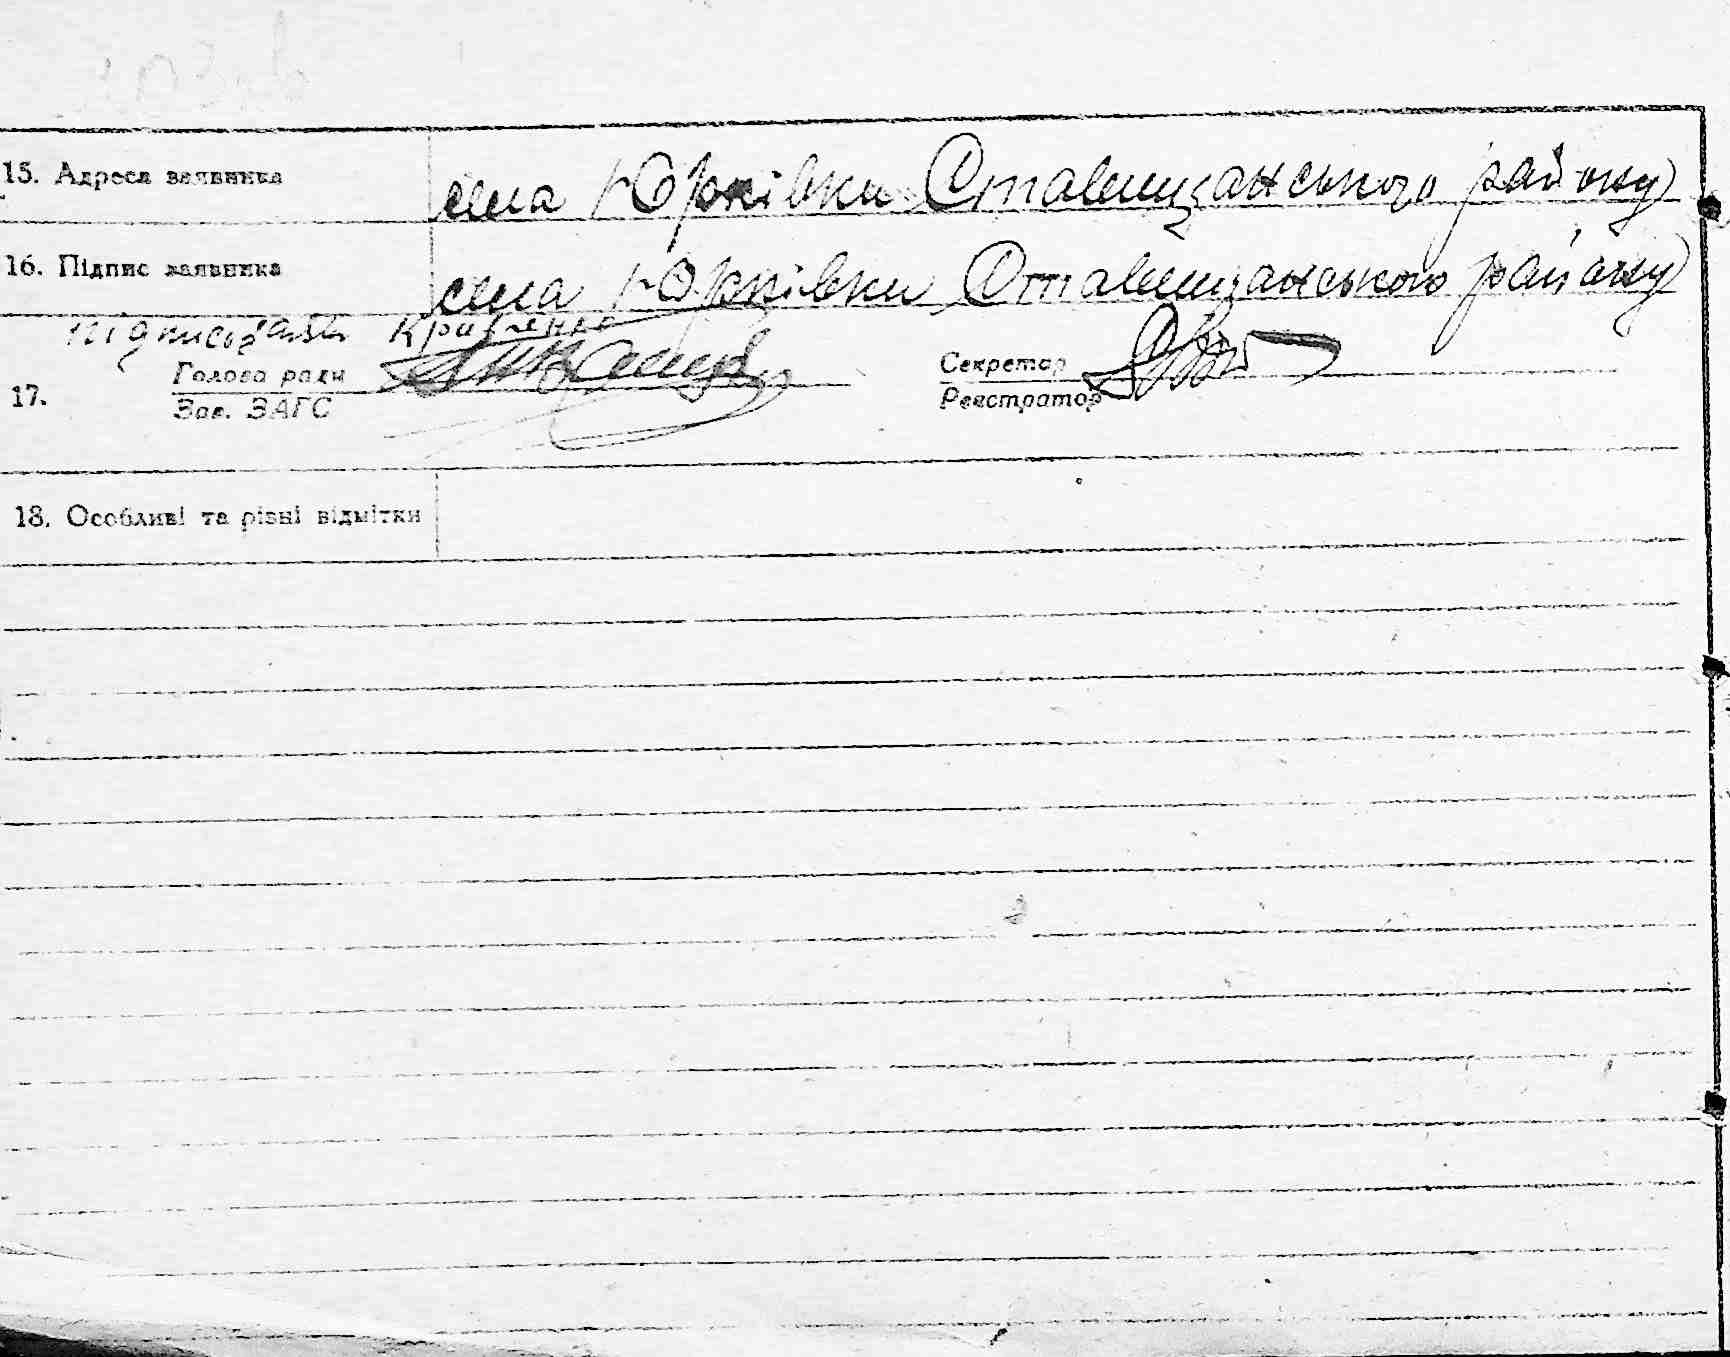 15. Адреса заявника села Юрківки Ставищанського району
16. Підпис заявника села Юрківки Ставищанського району
Кравченко
17. Голова ради Секретар
Зав. ЗАГС Реєстратор
18. Особливі та різні відмітки